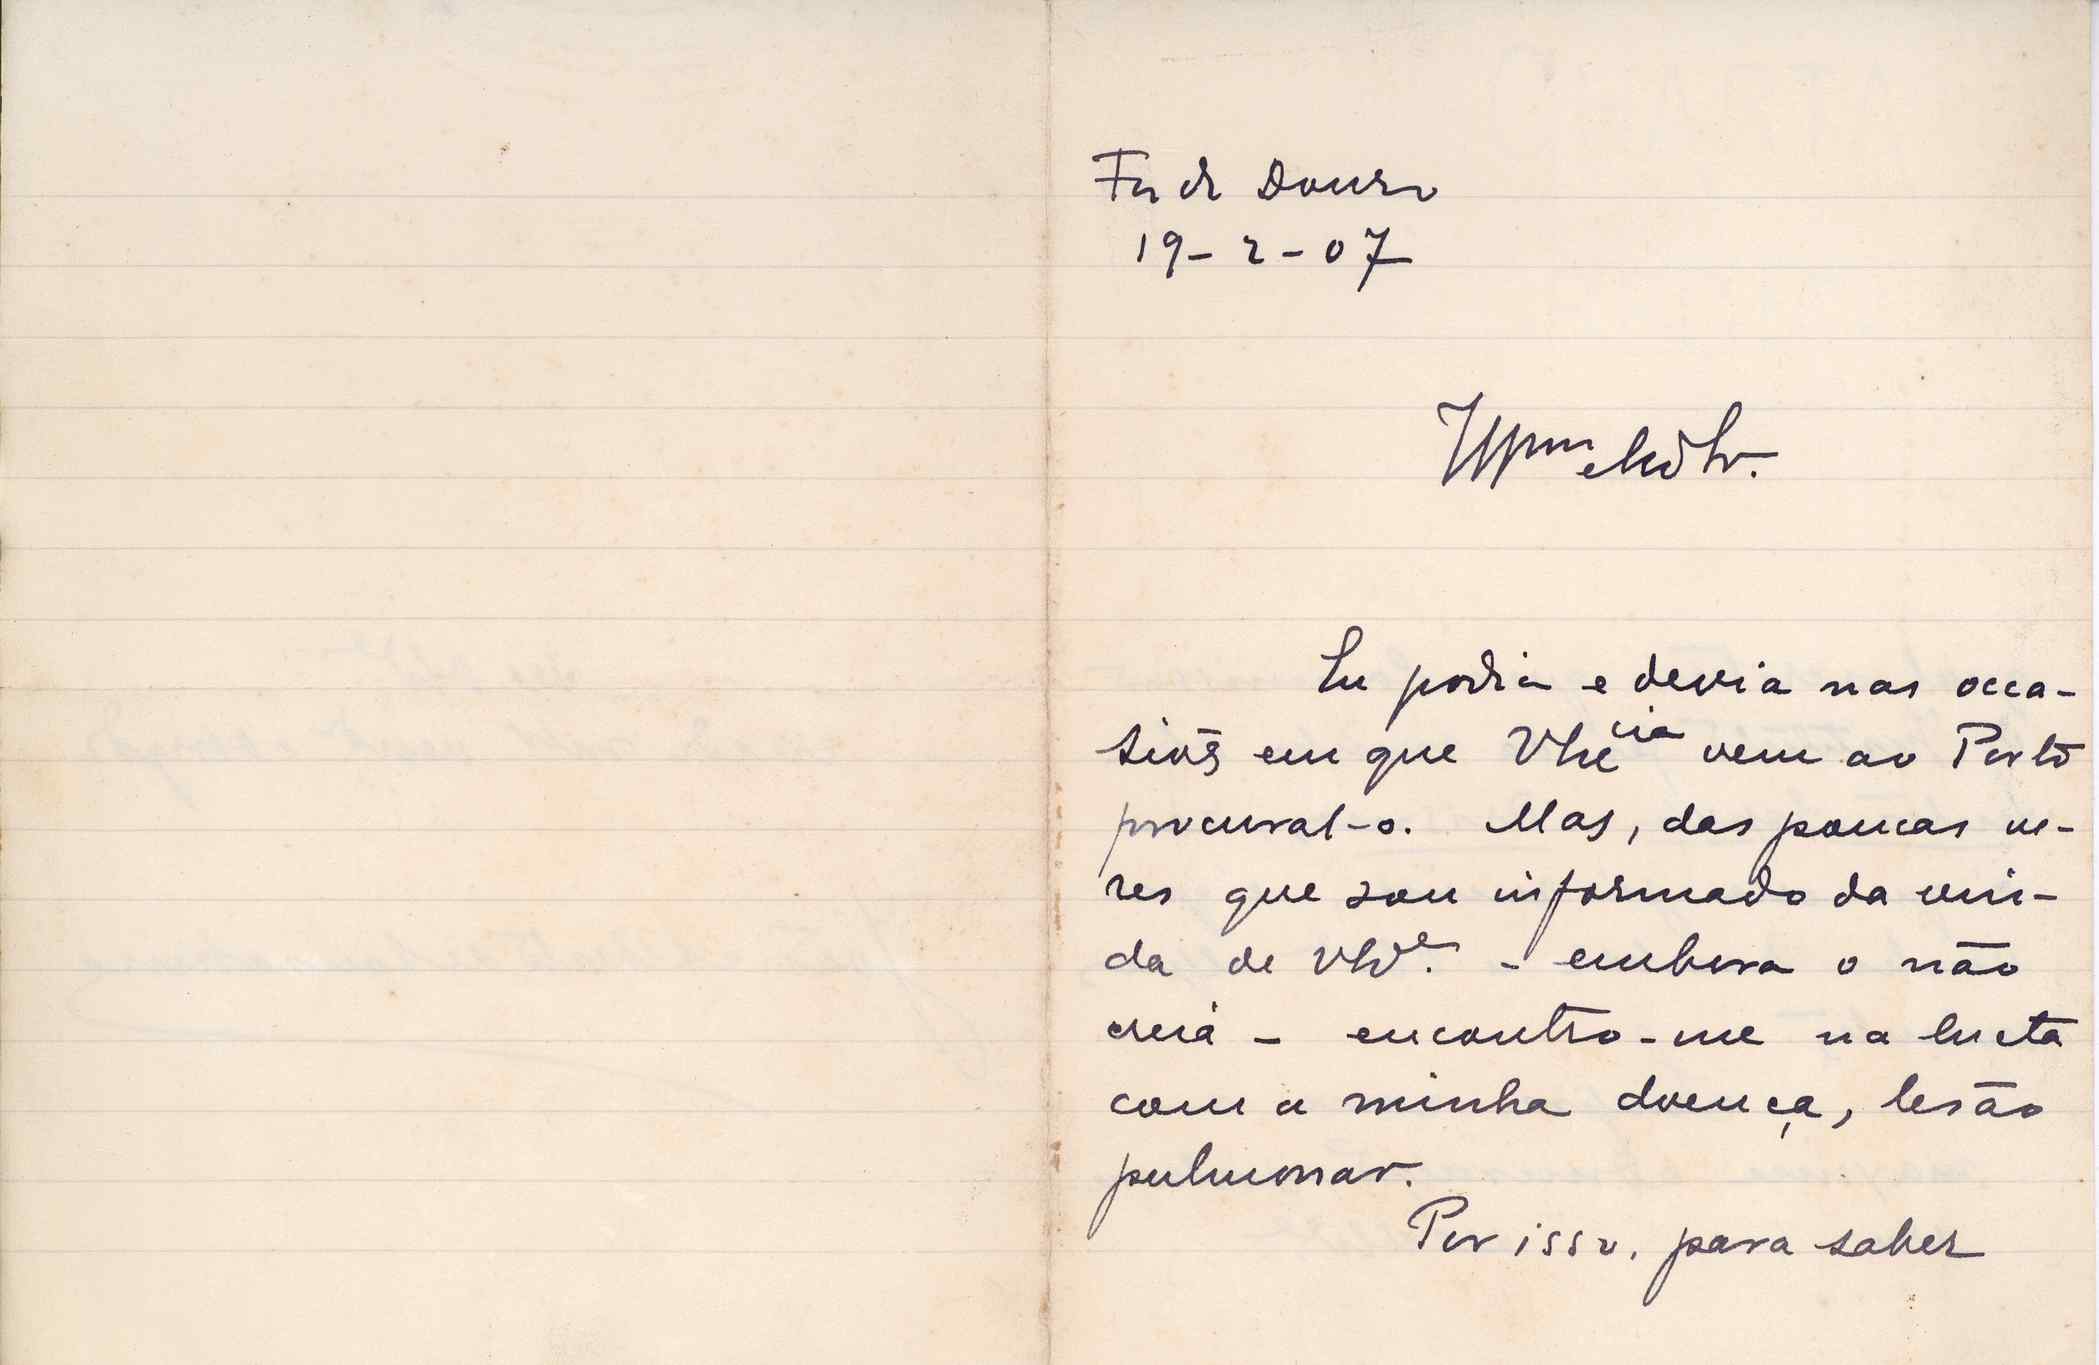 Foz do Douro
19-2-07
Eu podia e devia nas occa-
siões em que V Ex.cia vem ao Porto
procural-o. Mas, das poucas ve-
zes que sou informado da vin-
da de V Ex.e - embora o não
creia - encontro-me na lucta
com a minha doença, lesão
pulmonar.
Por isso, para saber